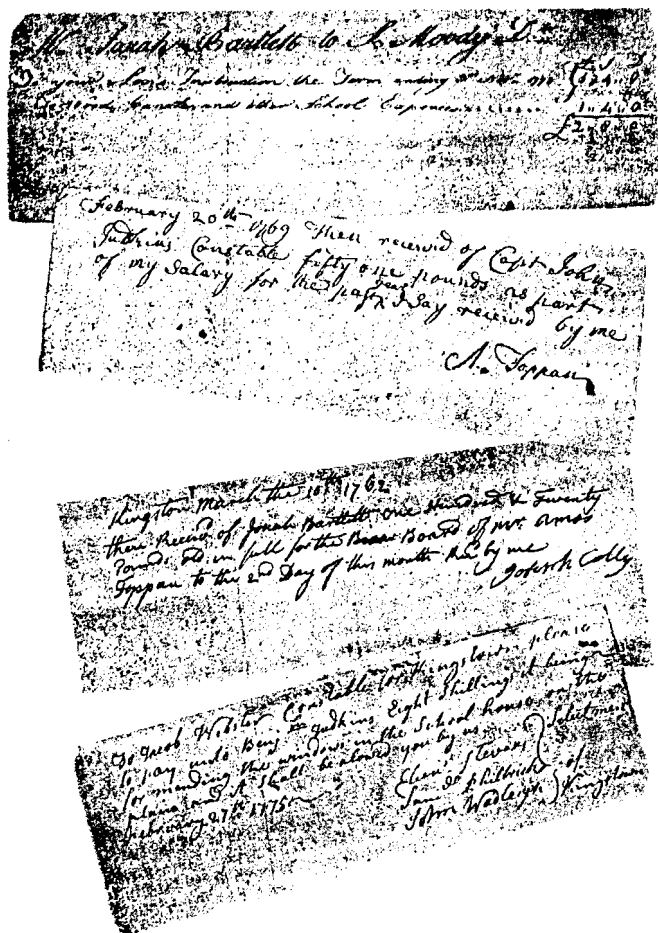 Mr. Sarah Bartlett to S. Moody Dr.
£ S D
your Sons Instruction the Term ending
and other School Expences 1..4..0
£
February 20th 1769 Then received of Capt John
Judkins Constable fifty one pounds as part
of my Salary for the past year I say received by me
A. Toppan
Kingston March the 10th 1762
then Receied of Jonah Bartlett one Hundred & Twenty
Pounds old in full for the Board of Mr. Amos
Toppan to the 2nd Day of this month Red by me
Joseph Colby
To Jacob Webster Constable for Kingstown please
to pay unto Benj Judkins Eight Shillings it being
for mending the windows in the School house on the
plains and it Shall be alowed you by us
February 27th 1775
Elenr Stevens } Selectmen
Sam Philbrick } of
John Wadleigh } Kingstown